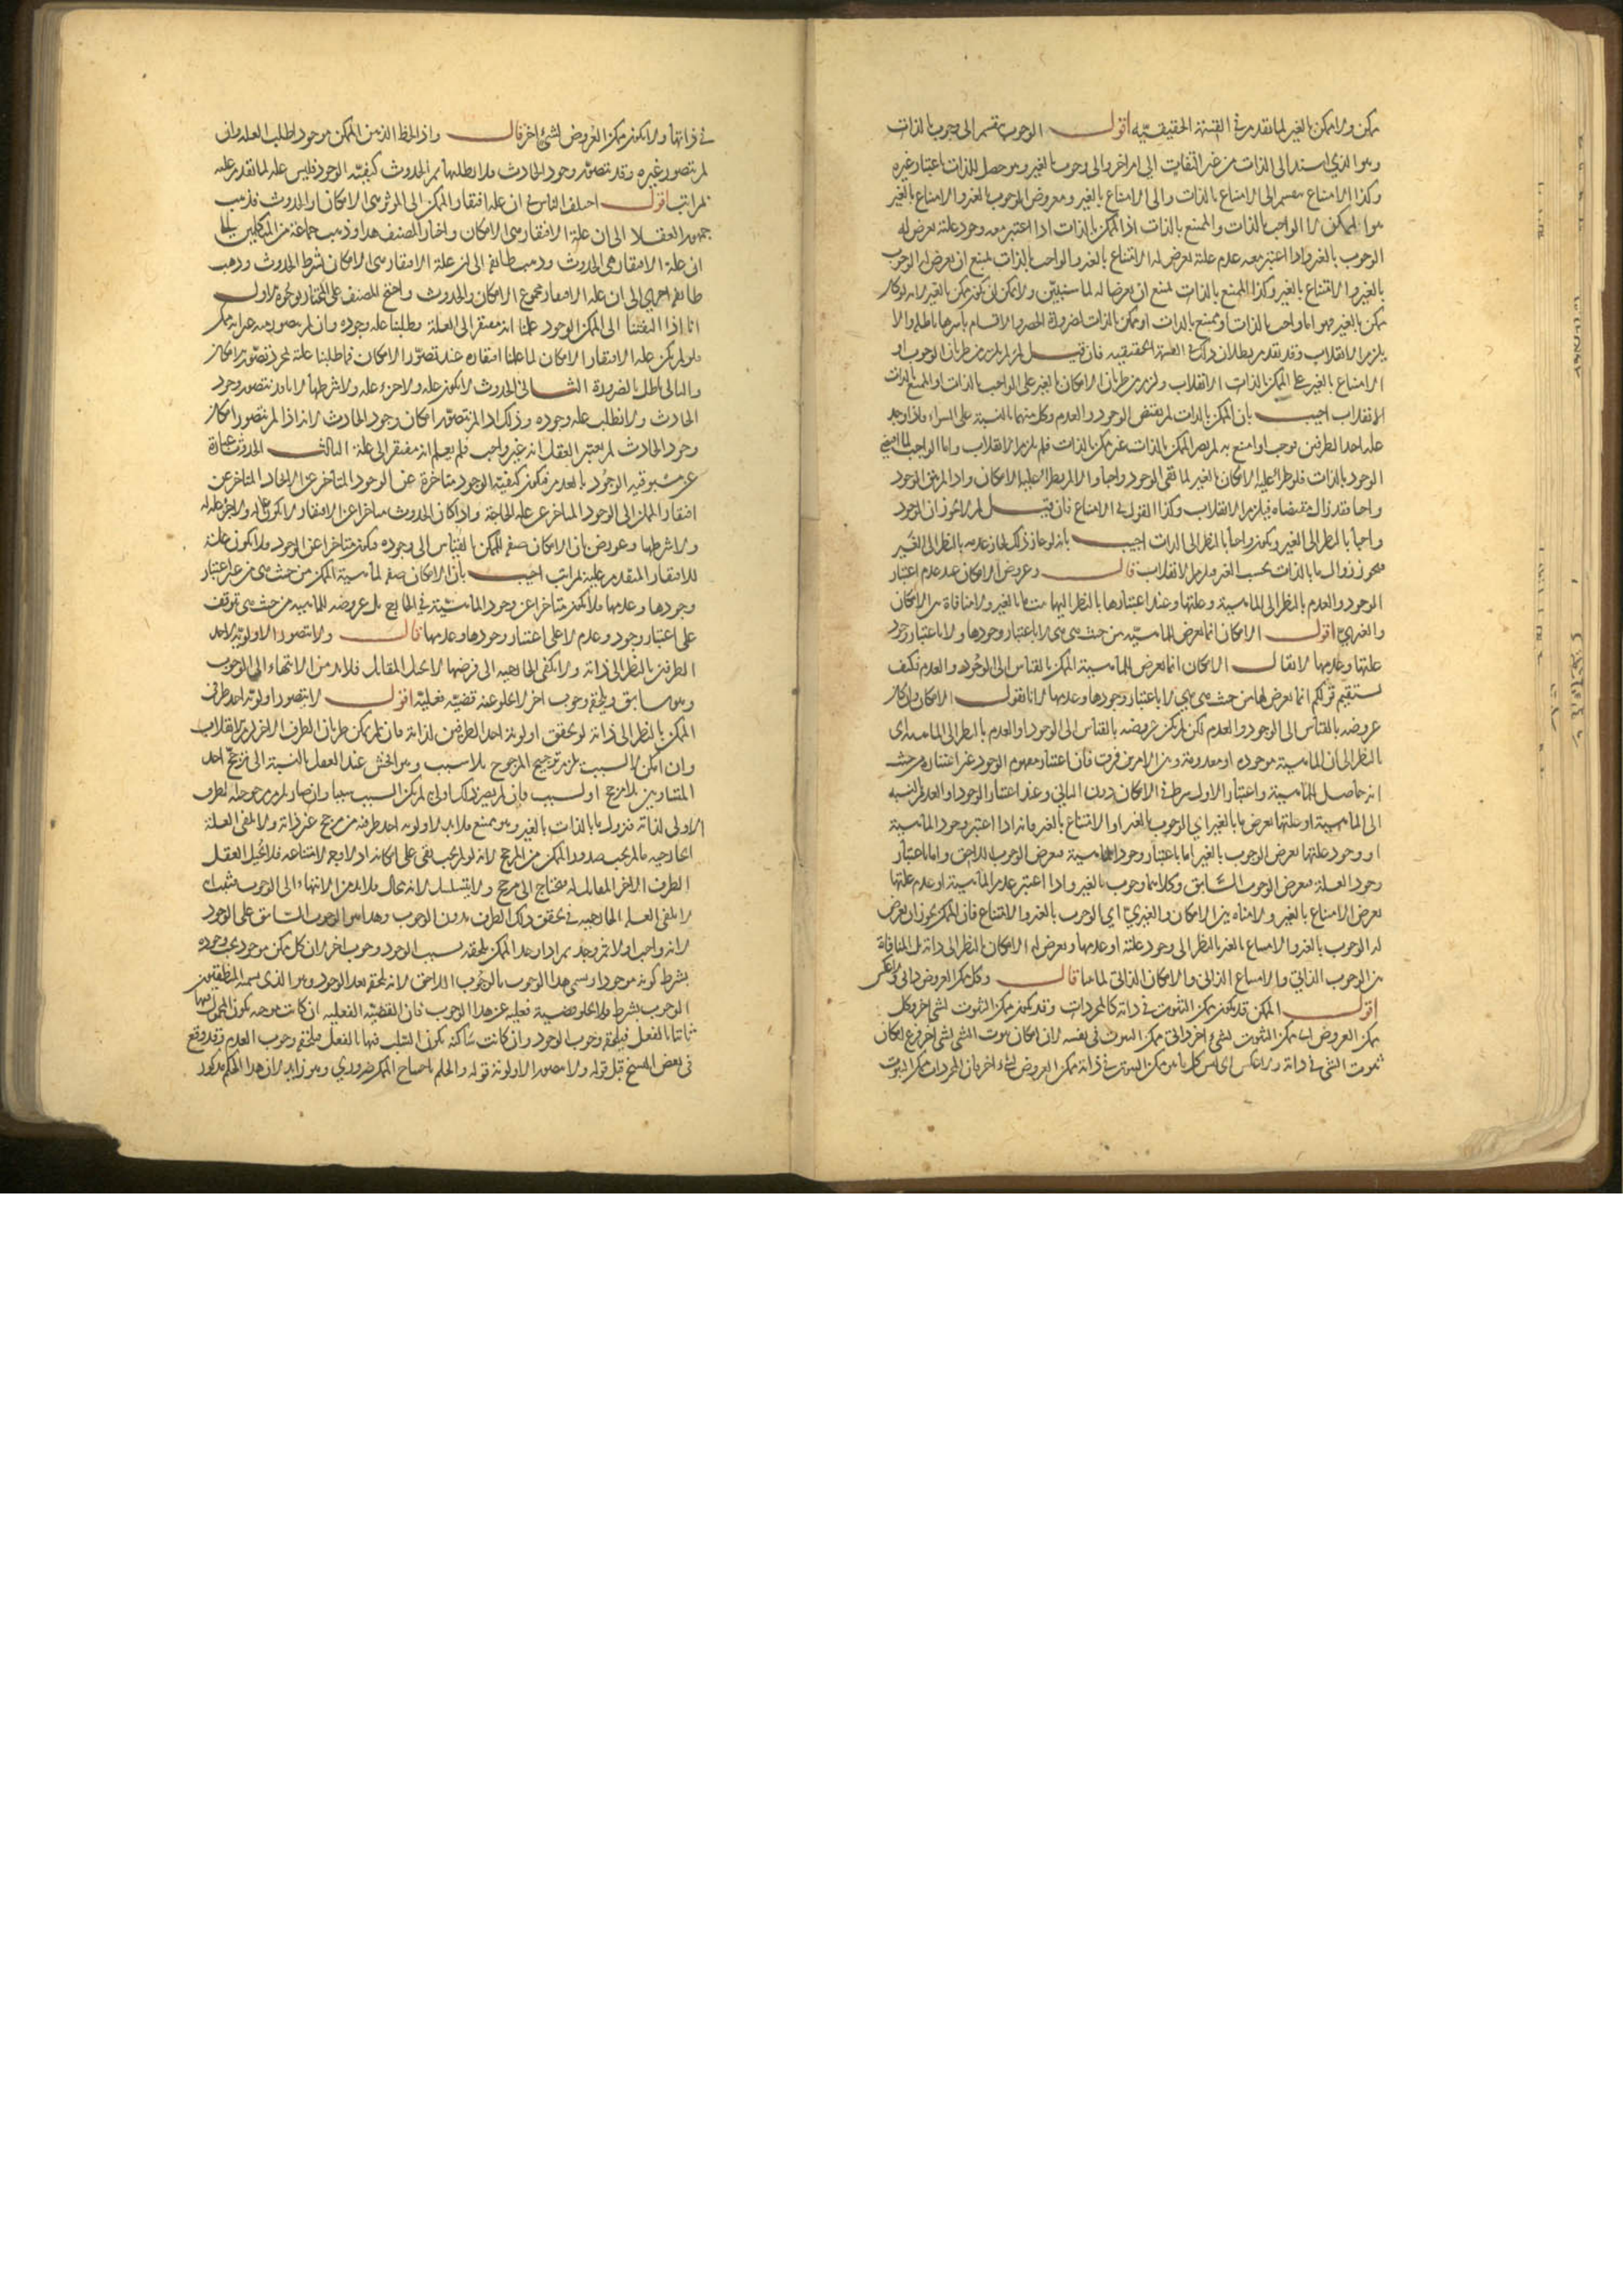 ممكن ولا ممكن بالغير لما تقدم في القسمة الحقيقية اقول الوجوب ينقسم الى وجوب بالذات
وهو الذي استند الى الذات من غير التفات الى امر اخر والى وجوب بالغير وهو حصل للذات باعتبار غيره
وكذا الامتناع ينقسم الى الامتناع بالذات والى الامتناع بالغير ومعروض الوجوب بالغير والامتناع بالغير
هو الممكن لا الواجب بالذات والممتنع بالذات اذ الممكن بالذات اذا اعتبر معه وجود علته يعرض له
الوجوب بالغير واذا اعتبر معه عدم علته يعرض له الامتناع بالغير والواجب بالذات يمتنع ان يعرض له الوجوب
بالغير والامتناع بالغير وكذا الممتنع بالذات يمتنع ان يعرضا له لما سنبين ولا يمكن ان يكون ممكن بالغير لانه لو كان
ممكن بالغير فهو اما واجب بالذات او ممتنع بالذات او ممكن بالذات لضرورة الحصر والاقسام باسرها باطلة والا
يلزم الانقلاب وقد تقدم بطلان ذلك في القسمة الحقيقية فان قيل لم لم يلزم من طريان الوجوب او
الامتناع بالغير على الممكن بالذات الانقلاب ولزم من طريان الامكان بالغير على الواجب بالذات او الممتنع بالذات
الانقلاب اجيب بان الممكن بالذات لم يقتض الوجود والعدم وكل منهما بالنسبة على السواء فاذا وجد
علة احد الطرفين فوجب او امتنع به لم يصر الممكن بالذات غير ممكن بالذات فلم يلزم الانقلاب واما الواجب لما اقتضى
الوجود بالذات فلو طرأ عليه الامكان بالغير لما بقي الوجود واجبا والا لم يطرأ عليه الامكان واذا لم يبق الوجود
واجبا فقد زال مقتضاه فيلزم الانقلاب وكذا القول في الامتناع فان قيل لم لا يجوز ان الوجود
واجبا بالنظر الى الغير ويكون واجبا بالنظر الى الذات اجيب بانه لو جاز ذلك لجاز عدمه بالنظر الى الغير
فيجوز زوال ما بالذات بحسب الغير فيلزم الانقلاب قال وعروض الامكان عند عدم اعتبار
الوجود والعدم بالنظر الى الماهية وعلتها وعند اعتبارها بالنظر اليها يثبت ما بالغير ولا منافاة بين الامكان
والغيري اقول الامكان انما يعرض للماهية من حيث هي هي لا باعتبار وجودها ولا باعتبار وجود
علتها وعدمها لا يقال الامكان انما يعرض للماهية الممكن بالقياس الى الوجود والعدم فكيف
يستقيم قولكم انما يعرض لها من حيث هي هي لا باعتبار وجودها وعدمها لانا نقول الامكان وان كان
عروضه بالقياس الى الوجود والعدم لكن لم يكن عروضه بالقياس الى الوجود او العدم بالنظر الى الماهية اي
بالنظر الى ان الماهية موجودة او معدومة وبين الامرين فرق فان اعتبار مفهوم الوجود غير اعتباره من حيث
انه حاصل للماهية واعتبار الاول شرط في الامكان دون الثاني وعند اعتبار الوجود او العدم بالنسبة
الى الماهية او علتها يعرض ما بالغير اي الوجوب بالغير او الامتناع بالغير فانه اذا اعتبر وجود الماهية
او وجود علتها يعرض الوجوب بالغير اما باعتبار وجود الماهية فيعرض الوجوب اللاحق واما باعتبار
وجود العلة فيعرض الوجوب السابق وكلاهما وجوب بالغير واذا اعتبر عدم الماهية او عدم علتها
يعرض الامتناع بالغير ولا منافاة بين الامكان والغيري اي الوجوب بالغير والامتناع فان الممكن يجوز ان يعرض
له الوجوب بالغير والامتناع بالغير بالنظر الى وجود علته او عدمها ويعرض له الامكان بالنظر الى ذاته بل المنافاة
بين الوجوب الذاتي والامتناع الذاتي والامكان الذاتي لما مر قال وكل ممكن العروض ذاتي ولا عكس
اقول الممكن قد يكون ممكن الثبوت في ذاته كالمجردات وقد يكون ممكن الثبوت لشيء اخر وكل
ممكن العروض اي ممكن الثبوت لشيء اخر ذاتي ممكن الثبوت في نفسه لان امكان ثبوت الشيء لشيء اخر فرع امكان
ثبوت الشيء في ذاته ولا عكس اي ليس كل ما هو ممكن الثبوت في ذاته ممكن العروض لشيء اخر فان المجردات ممكن الثبوت
في ذاتها ولا يكون ممكن العروض لشيء اخر قال واذا لحظ الذهن الممكن موجودا طلب العلة وان
لم يتصور غيره وقد يتصور وجود الحادث فلا يطلبها ثم الحدوث كيفية الوجود فليس علة لما تقدم عليه
بمراتب اقول اختلف الناس في ان علة افتقار الممكن الى المؤثر هي الامكان او الحدوث فذهب
جمهور العقلاء الى ان علة الافتقار هي الامكان واختار المصنف هذا وذهب جماعة من المتكلمين الى
ان علة الافتقار هي الحدوث وذهب طائفة الى ان علة الافتقار هي الامكان بشرط الحدوث وذهب
طائفة اخرى الى ان علة الافتقار مجموع الامكان والحدوث واحتج المصنف على المختار بوجوه الاول
انا اذا التفتنا الى الممكن الوجود علمنا انه مفتقر الى العلة وطلبنا علة وجوده وان لم يتصور معه غير انه ممكن
فلو لم يكن علة الافتقار الامكان لما علمنا افتقاره عند تصور الامكان فما طلبنا علته بمجرد تصور الامكان
والتالي باطل بالضرورة الثاني الحدوث لا يكون علة ولا جزء علة ولا شرطها لانا قد نتصور وجود
الحادث ولا نطلب علة وجوده وذلك اذا لم نتصور امكان وجود الحادث لانه اذا لم نتصور امكان
وجود الحادث لم يعتبر العقل انه غير واجب فلم يعلم انه مفتقر الى علة الثالث الحدوث عبارة
عن مسبوقية الوجود بالعدم فيكون كيفية الوجود متاخرة عن الوجود المتاخر عن الايجاد المتاخر عن
افتقار الممكن الى الوجود المتاخر عن علة الحاجة واذا كان الحدوث متاخرا عن الافتقار لا يكون علة ولا جزء علة له
ولا شرطها وعورض بان الامكان صفة للممكن بالقياس الى وجوده فيكون متاخرا عن الوجود فلا يكون علة
للافتقار المتقدم عليه بمراتب اجيب بان الامكان صفة لماهية الممكن من حيث هي من غير اعتبار
وجودها وعدمها فلا يكون متاخرا عن وجود الماهية في الخارج بل عروضه للماهية من حيث هي توقف
على اعتبار وجود وعدم لا على اعتبار وجودها وعدمها قال ولا يتصور الاولوية لاحد
الطرفين بالنظر الى ذاته ولا تكفي الخارجية الى فرضها لا يحيل المقابل فلا بد من الانتهاء الى الوجوب
وهو سابق ويلحقه وجوب اخر لا يخلو عنه قضية فعلية اقول لا يتصور اولوية احد طرفي
الممكن بالنظر الى ذاته لو تحقق اولوية احد الطرفين لذاته فان لم يمكن طريان الطرف الاخر لزم الانقلاب
وان امكن لا لسبب يلزم ترجيح المرجوح بلا سبب وهو افحش عند العقل بالنسبة الى ترجيح احد
المتساويين بلا مرجح او لسبب فان لم يصر ذلك اولى لم يكن السبب سببا وان صار يلزم مرجوحية لطرف
الاولى لذاته فيزول ما بالذات بالغير وهو ممتنع فلا بد لاولوية احد طرفيه من مرجح غير ذاته ولا يكفي العلة
الخارجية ما لم يجب صدور الممكن من المرجح لانه لو لم يجب بقي على امكانه اذ لا وجه لامتناعه فلا يحيل العقل
الطرف الاخر المقابل له فيحتاج الى مرجح ولا يتسلسل لانه محال فلا بد من الانتهاء الى الوجوب فثبت ان
لا تكفي العلة الخارجية في تحقق ذلك الطرف بدون الوجوب وهذا هو الوجوب السابق على الوجود
لانه واجب اولا ثم وجد ثم اذا وجد الممكن يلحقه بسبب الوجود وجوب اخر لان كل ممكن موجود يجب وجوده
بشرط كونه موجودا ويسمى هذا الوجوب بالوجوب اللاحق لانه يلحقه بعد الوجود وهو الذي يسميه المنطقيين
الوجوب بشرط ولا يخلو قضية فعلية عن هذا الوجوب فان القضية الفعلية ان كانت موجبة يكون المحمول فيها
ثابتا بالفعل فيلحقه وجوب الوجود وان كانت سالبة يكون السلب فيها بالفعل فيلحقه وجوب العدم وقد وقع
في بعض النسخ قبل قوله ولا يتصور الاولوية قوله والحكم باحتياج الممكن ضروري وهو زايد لان هذا الحكم مذكور